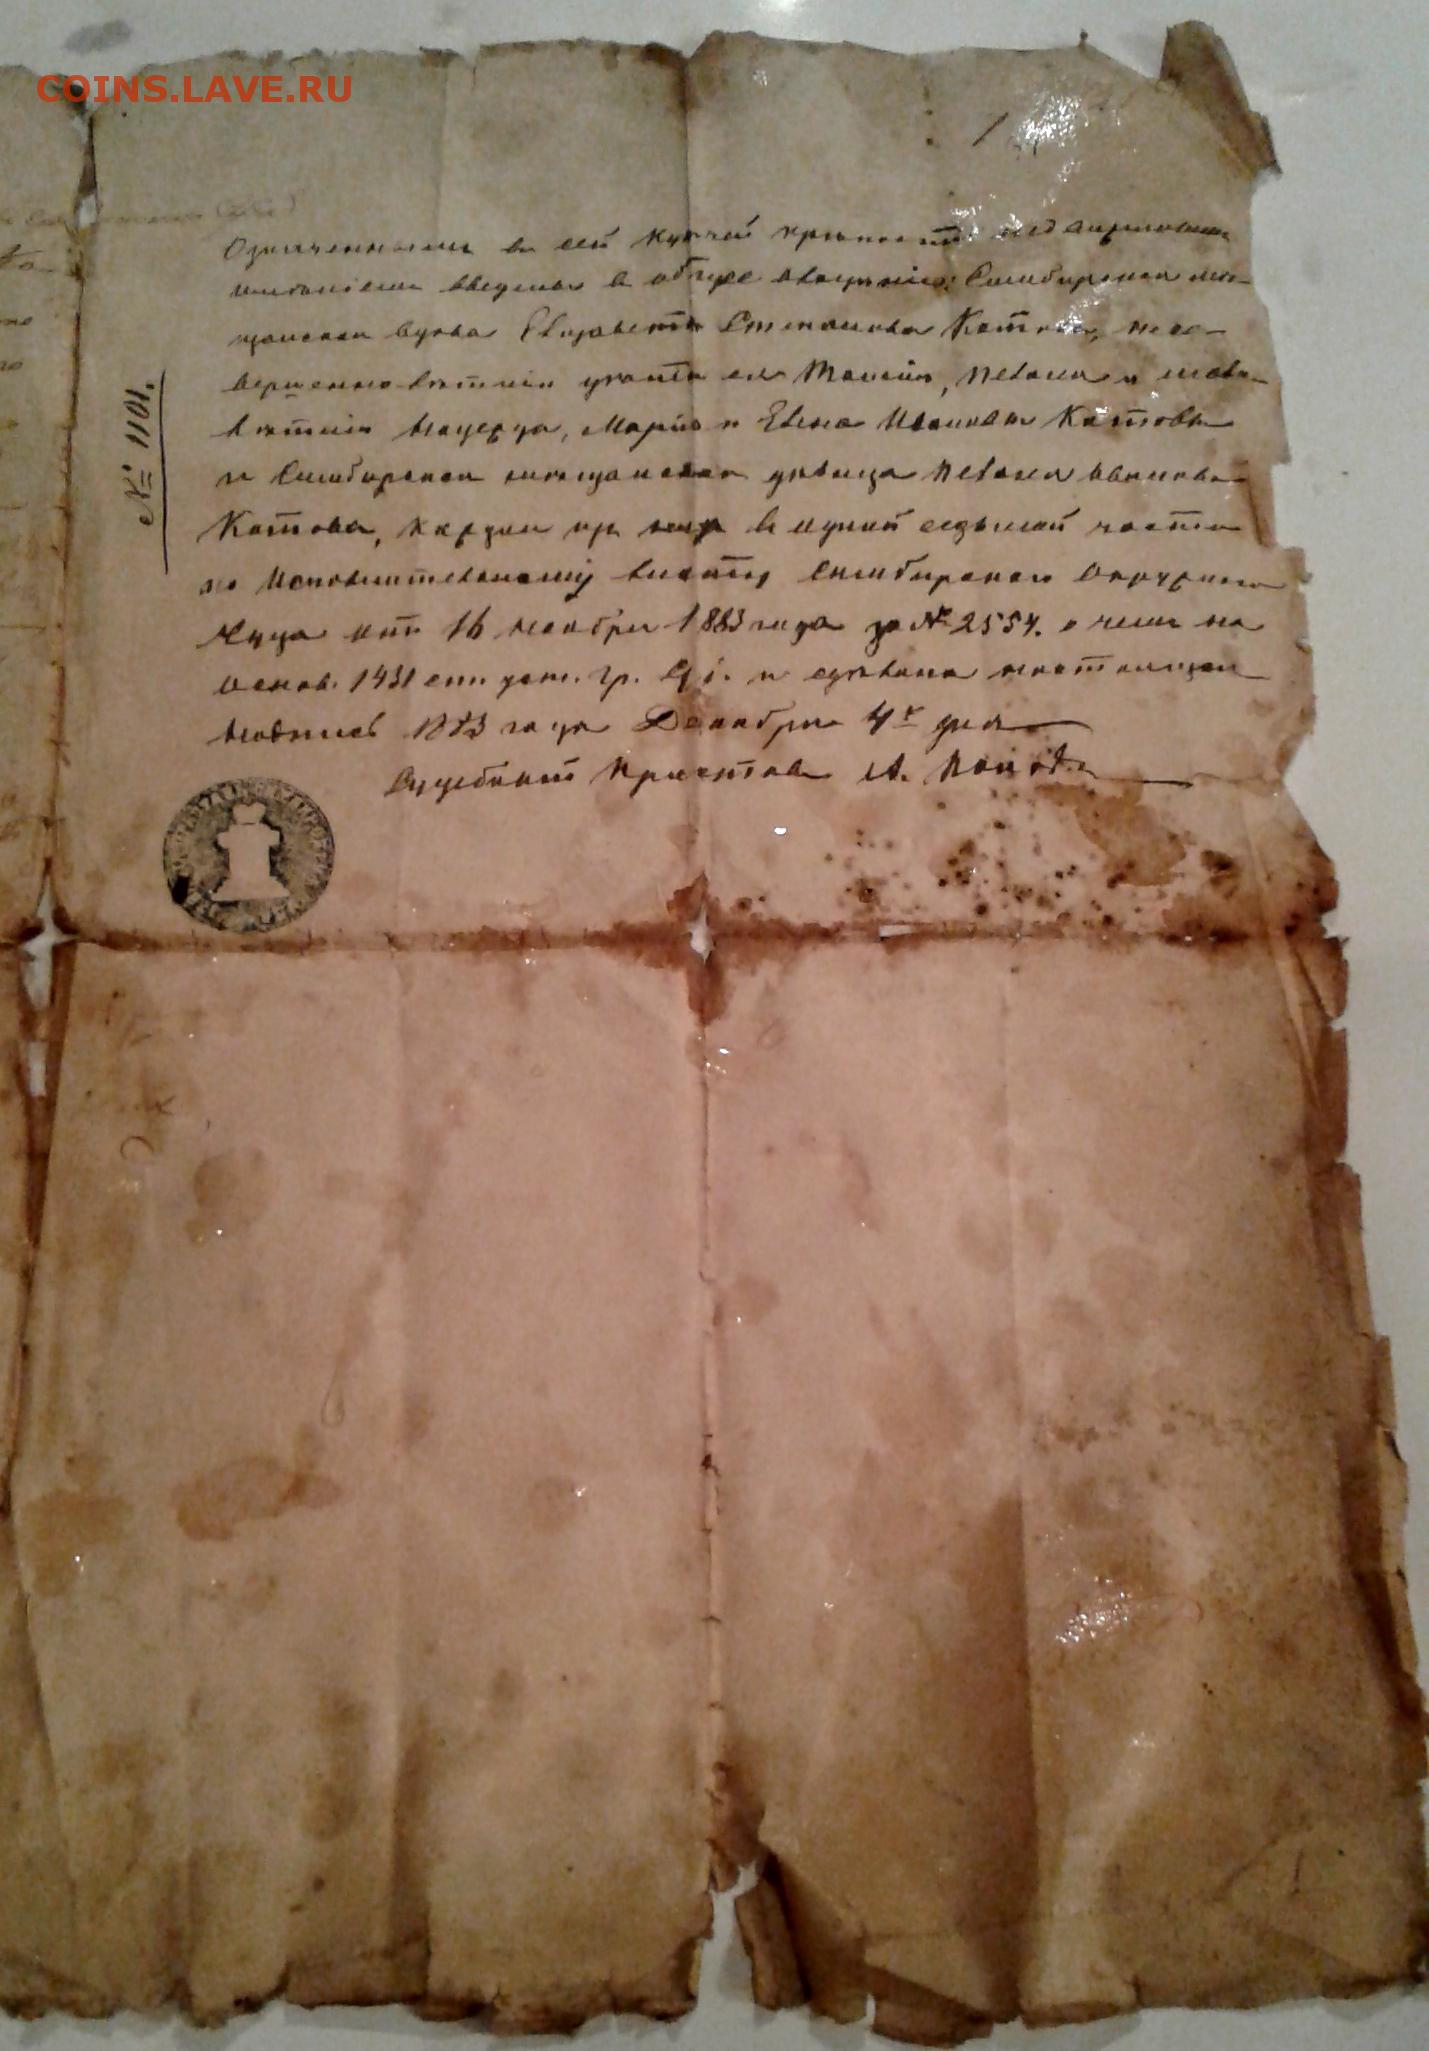 COINS.LAVE.RU
1
№ 1101.
Означенномъ въ сей купчей крѣпости недвижимымъ
имѣніемъ введены в общее владѣніе: Симбирская мѣ-
щанская вдова Елизавета Степанова Котова, несо-
вершеннолѣтніи дѣти ея Таисія, Пелагея и мало-
лѣтніе Надежда, Марія и Елена Ивановы Котовы
и Симбирская мѣщанская дѣвица Пелагея Иванова
Котова, каждая въ одной седьмой части
по Исполнительному листу Симбирскаго Окружнаго
Суда отъ 16 Ноября 1883 года за № 2554. о чемъ на
основ. 1431 ст. уст. гр. суд. и сдѣлана настоящая
надпись 1883 года Декабря 4 дня
Судебный Приставъ А. Поповъ